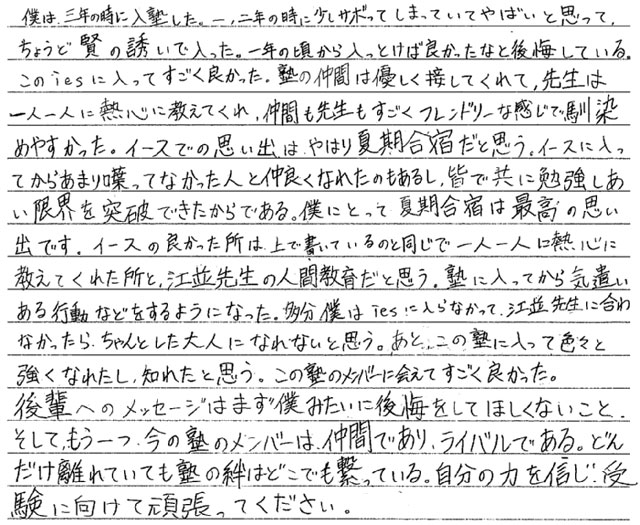 僕は、三年の時に入塾した。一、二年の時に少しサボってしまっていてやばいと思って、
ちょうど賢の誘いで入った。一年の頃から入っとけば良かったなと後悔している。
このiesに入ってすごく良かった。塾の仲間は優しく接してくれて、先生は
一人一人に熱心に教えてくれ、仲間も先生もすごくフレンドリーな感じで馴染
めやすかった。イースでの思い出は、やはり夏期合宿だと思う。イースに入っ
てからあまり喋ってなかった人と仲良くなれたのもあるし、皆で共に勉強しあ
い限界を突破できたからである。僕にとって夏期合宿は最高の思い
出です。イースの良かった所は、上で書いているのと同じで一人一人に熱心に
教えてくれた所と、江並先生の人間教育だと思う。塾に入ってから気遣い
ある行動などをするようになった。多分僕はiesに入らなかって、江並先生に合わ
なかったら、ちゃんとした大人になれないと思う。あと、この塾に入って色々と
強くなれたし、知れたと思う。この塾のメンバーに会えてすごく良かった。
後輩へのメッセージはまず僕みたいに後悔をしてほしくないこと。
そして、もう一つ、今の塾のメンバーは、仲間であり、ライバルである。どん
だけ離れていても塾の絆はどこでも繋っている。自分の力を信じ、受
験に向けて頑張ってください。